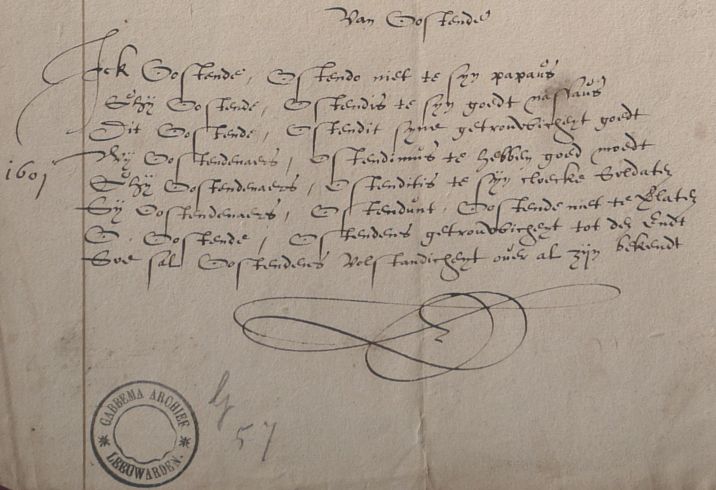 Van Oostende
Ick Oostende, Ostendo niet te syn papaus
Ghy Oostende, Ostendis te syn goedt nassaus
Dit Oostende, Ostendit syne getrouwicheyt goedt
Wy Oostendenaers, Ostendimus te hebben goed moedt
1601
Ghy Oostendenaers, Ostenditis te syn cloecke Soldaten
Sy Oostendenaers, Ostendunt, Oostende niet te Laten
O Oostende, Ostendens getrouwicheyt tot den Endt
Soe sal Oostendens Volstandicheyt over al zyn bekendt
GABBEMA ARCHIEF
LEEUWARDEN.
57